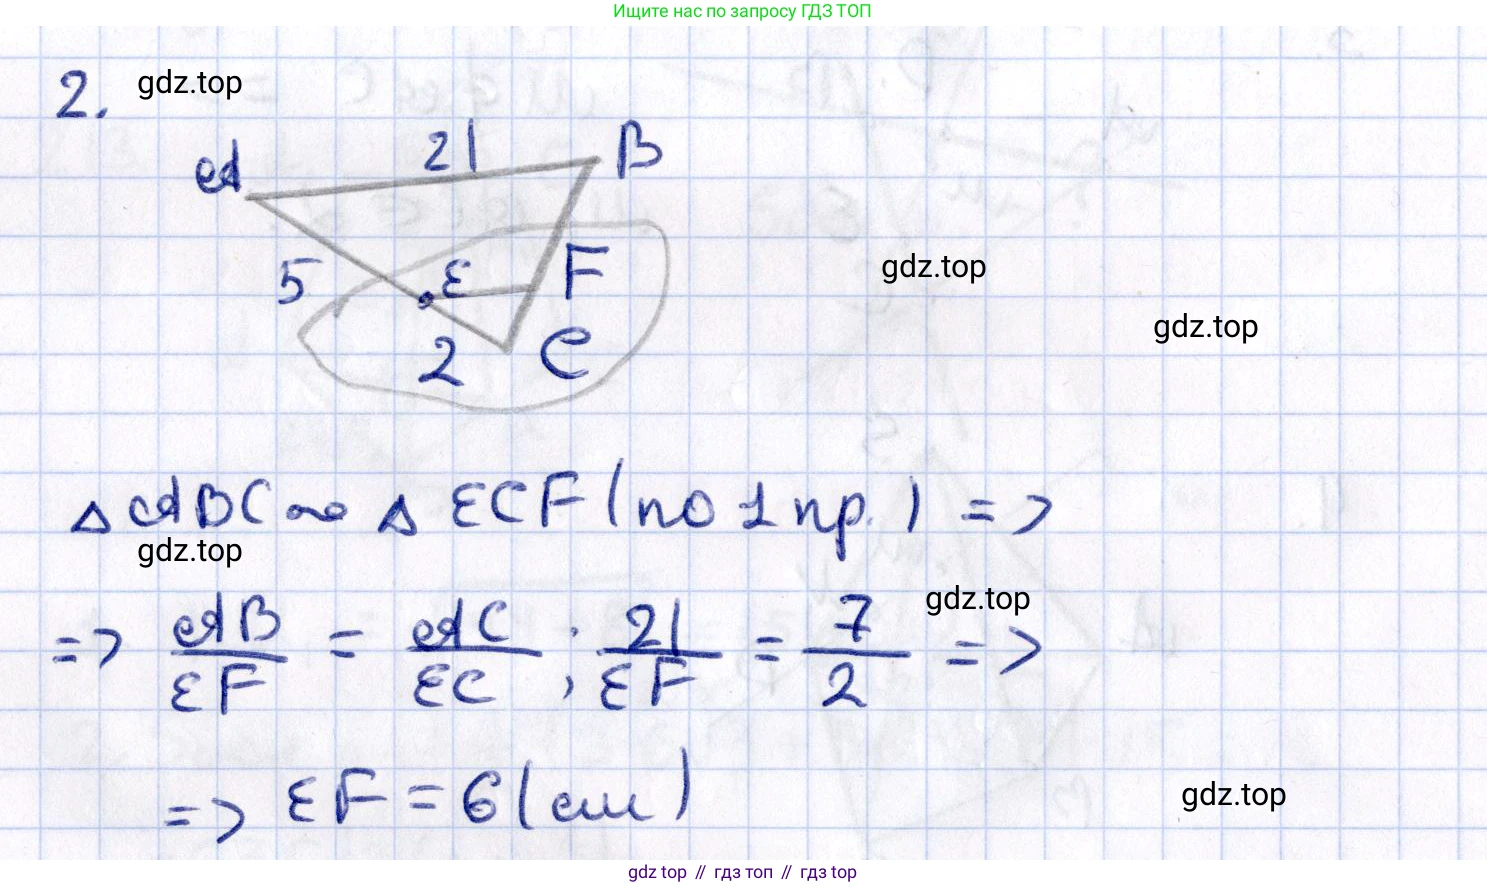 Ищите нас по запросу ГДЗ ТОП
2. gdz.top
21 B
A
5 E F gdz.top
gdz.top
2 C
△ ABC ∾ △ ECF (по 1 пр.) =>
gdz.top
gdz.top
=> AB/EF = AC/EC ; 21/EF = 7/2 =>
=> EF = 6 (см)
gdz.top
gdz top // гдз топ // гдз top